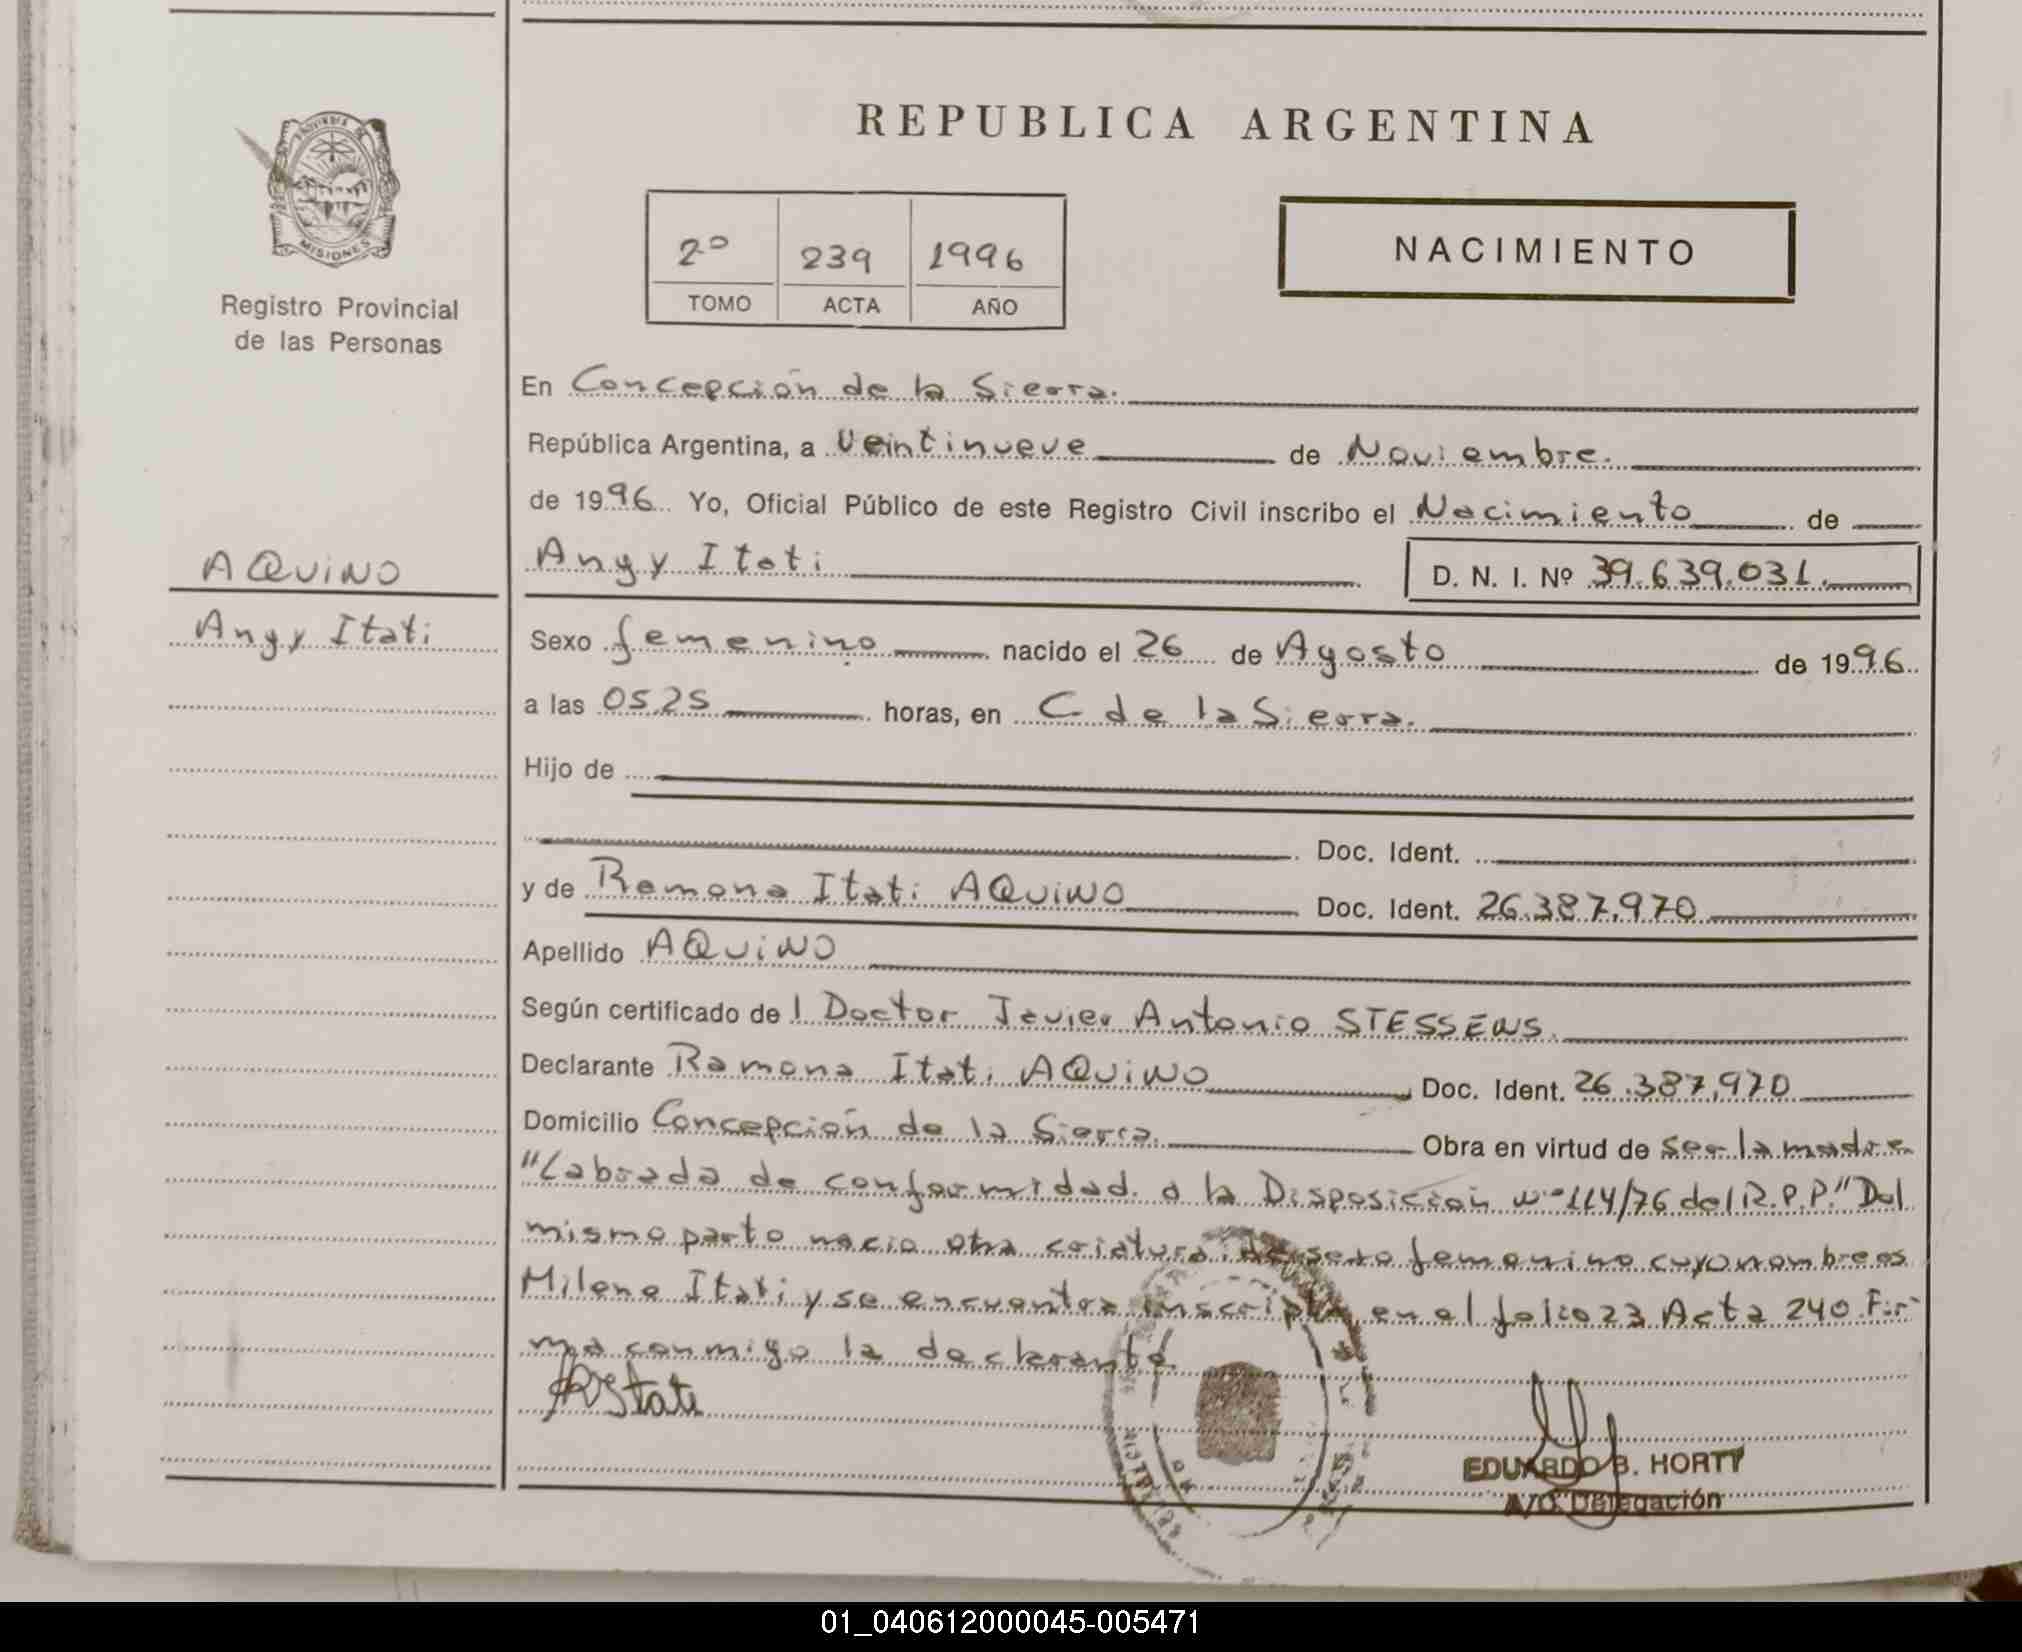 REPUBLICA ARGENTINA
PROVINCIA DE
MISIONES
Registro Provincial
de las Personas
2º 239 1996
TOMO ACTA AÑO
NACIMIENTO
En Concepción de la Sierra.
República Argentina, a veintinueve de Noviembre.
de 1996 Yo, Oficial Público de este Registro Civil inscribo el Nacimiento de
AQUINO
Angy Itati
Angy Itati D. N. I. Nº 39.639.031.
Sexo femenino nacido el 26 de Agosto de 1996
a las 05,25 horas, en C. de la Sierra.
Hijo de
Doc. Ident.
y de Ramona Itati AQUINO Doc. Ident. 26.387.970
Apellido AQUINO
Según certificado de l Doctor Javier Antonio STESSENS.
Declarante Ramona Itati AQUINO Doc. Ident. 26.387.970
Domicilio Concepción de la Sierra. Obra en virtud de ser la madre
"Labrada de conformidad a la Disposición Nº 114/76 del R.P.P." Del
mismo parto nacio otra criatura de sexo femenino cuyo nombre es
Milena Itati y se encuentra inscripta en el folio 23 Acta 240. Fir-
ma conmigo la declarante.
EDUARDO B. HORTT
A/C. Delegación
01_040612000045-005471